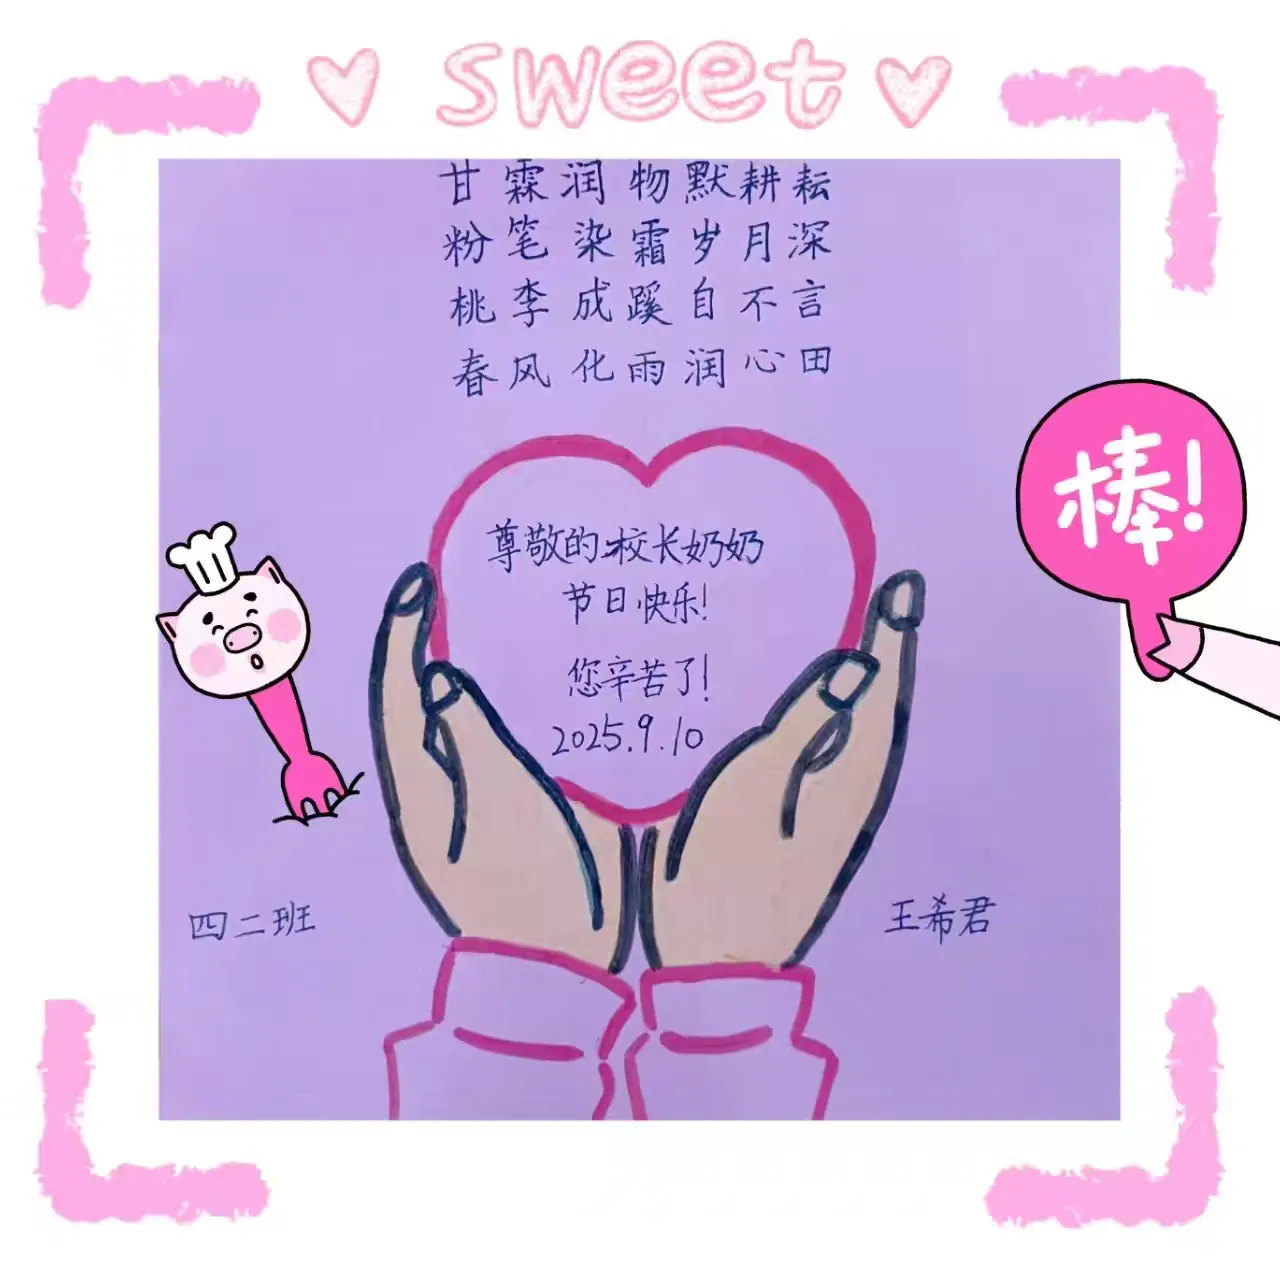 sweet
甘霖润物默耕耘
粉笔染霜岁月深
桃李成蹊自不言
春风化雨润心田
棒!
尊敬的校长奶奶
节日快乐!
您辛苦了!
2025.9.10
四二班
王希君